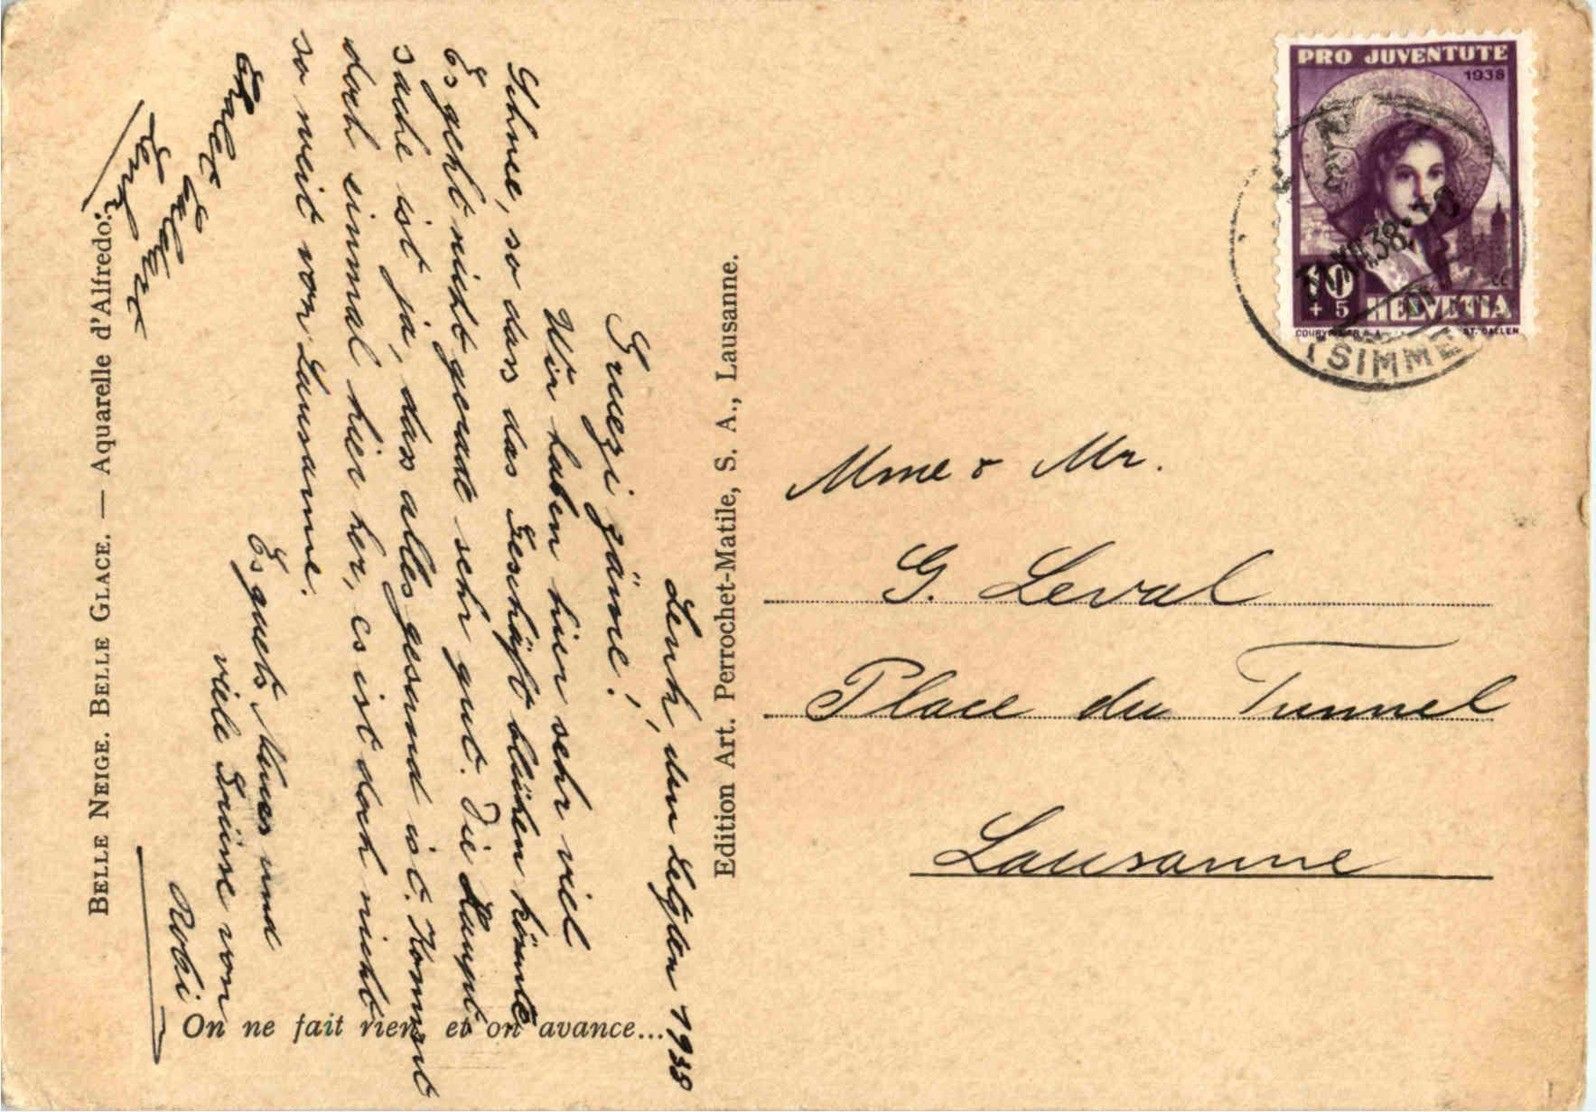 PRO JUVENTUTE
1938
10
+5
HELVETIA
COURVOISIER S.A.
ST. GALLEN
31.XII.38
(SIMME
Mme & Mr.
G. Leval
Place du Tunnel
Lausanne
Edition Art. Perrochet-Matile, S. A., Lausanne.
Lenk, den Letzten 1938
Gruezi zäme!
Wir haben hier sehr viel
Schnee, so dass das Geschäft blühen könnte
Es geht nicht gerade sehr gut. Die Haupt-
sache ist ja, dass alles gesund ist. Kommt
doch einmal hier her, es ist doch nicht
so weit von Lausanne.
Es guets Neues und
viele Grüsse von
Robi
Chalet
Lenk
BELLE NEIGE. BELLE GLACE. — Aquarelle d'Alfredo:
On ne fait rien et on avance...